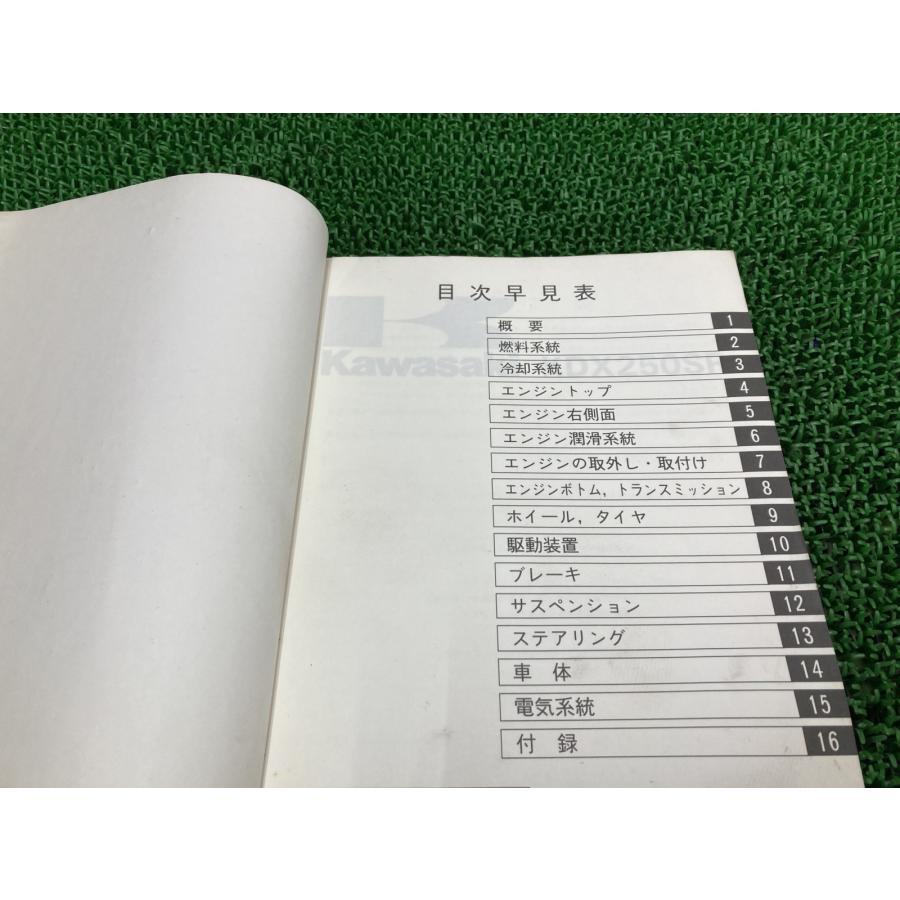 目次早見表
概 要 1
燃料系統 2
冷却系統 3
エンジントップ 4
エンジン右側面 5
エンジン潤滑系統 6
エンジンの取外し・取付け 7
エンジンボトム，トランスミッション 8
ホイール，タイヤ 9
駆動装置 10
ブレーキ 11
サスペンション 12
ステアリング 13
車 体 14
電気系統 15
付 録 16
Kawasaki
DX250S